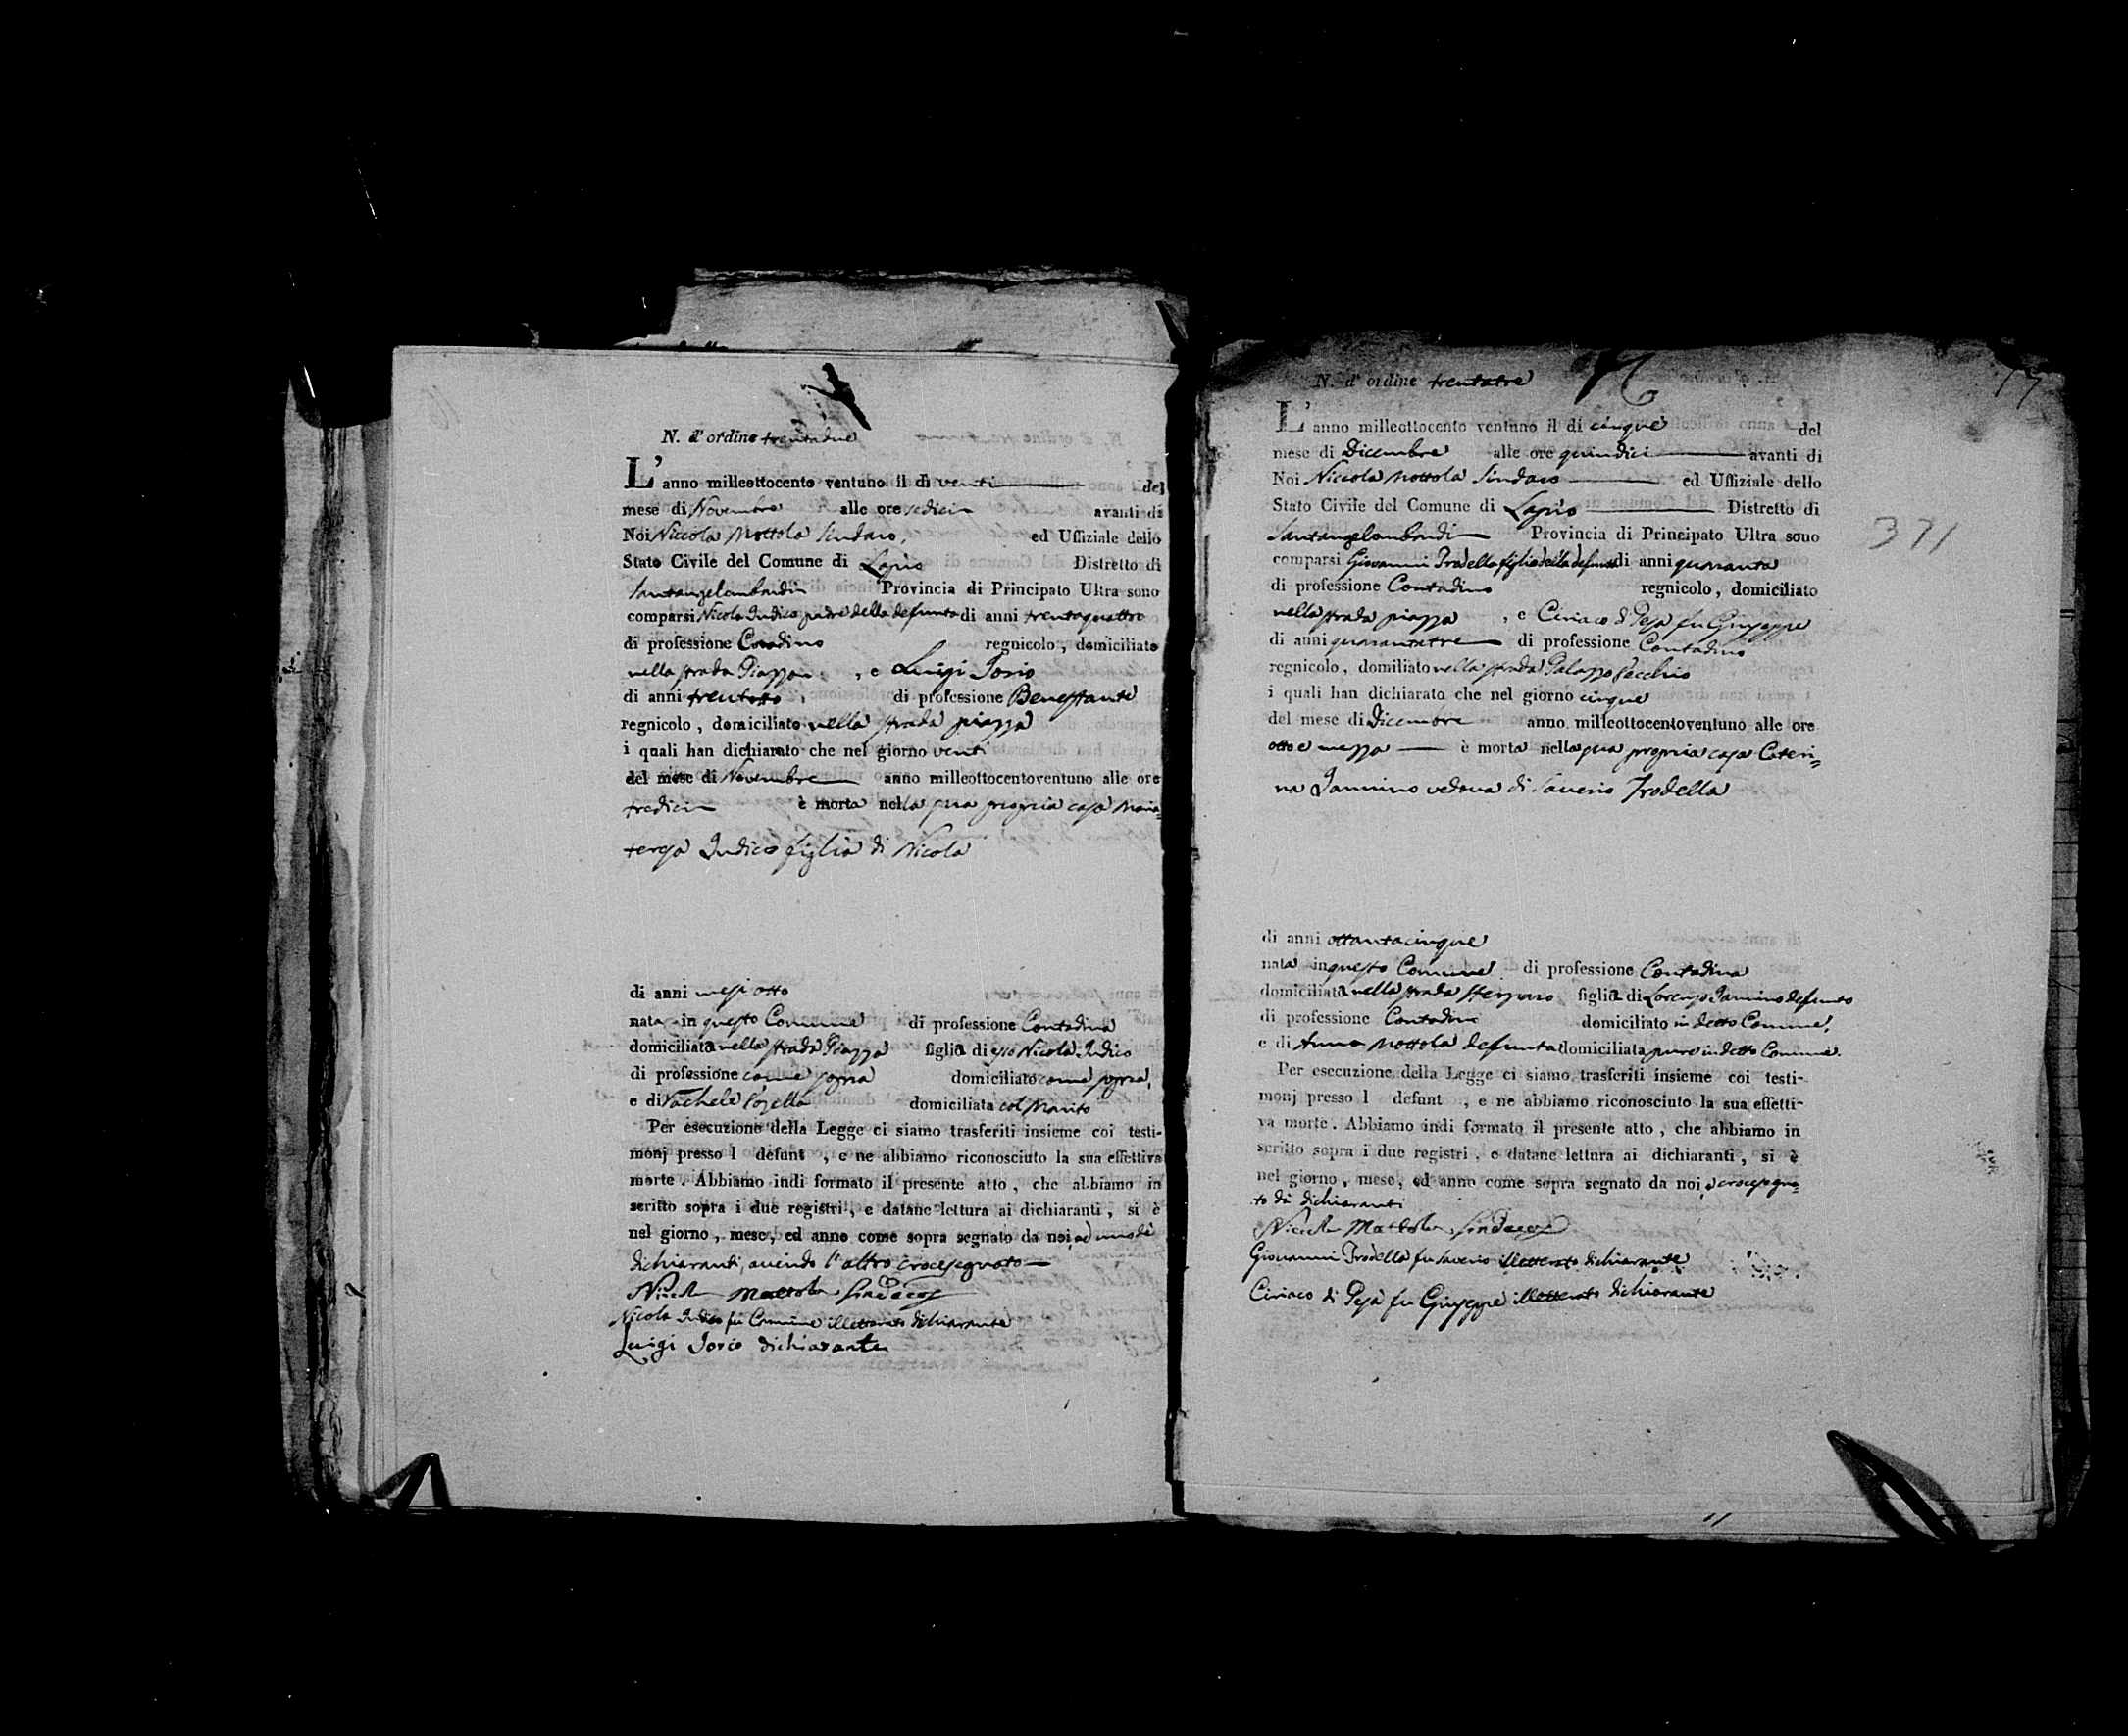 N. d'ordine trentadue
L'anno milleottocento ventuno il dì venti del
mese di Novembre alle ore sedici avanti di
Noi Niccola Mottola Sindaco, ed Uffiziale dello
Stato Civile del Comune di Lapio Distretto di
Santangelombardi Provincia di Principato Ultra sono
comparsi Nicola Iudico padre della defunta di anni trentaquattro
di professione Contadino regnicolo, domiciliato
nella strada Piazza, e Luigi Iorio
di anni trentotto, di professione Benestante
regnicolo, domiciliato nella strada piazza
i quali han dichiarato che nel giorno venti
del mese di Novembre anno milleottocentoventuno alle ore
tredici è morta nella sua propria casa Maria
teresa Iudico figlia di Nicola
di anni mesi otto
nata in questo Comune di professione Contadina
domiciliata nella strada Piazza figlia di esso Nicola Iudico
di professione come sopra domiciliato come sopra,
e di Rachele domiciliata col Marito
Per esecuzione della Legge ci siamo trasferiti insieme coi testi-
monj presso l defunt , e ne abbiamo riconosciuto la sua effettiva
morte. Abbiamo indi formato il presente atto, che abbiamo in
scritto sopra i due registri, e datane lettura ai dichiaranti, si è
nel giorno, mese, ed anno come sopra segnato da noi, ed uno de
dichiaranti, avendo l'altro crocesegnato
Nicola Mottola Sindaco
Nicola Iudico fu Carmine illetterato dichiarante
Luigi Iorio dichiarante
17
N. d'ordine trentatre
L'anno milleottocento ventuno il di cinque del
mese di Dicembre alle ore quindici avanti di
Noi Niccola Mottola Sindaco ed Uffiziale dello
Stato Civile del Comune di Lapio Distretto di
Santangelombardi Provincia di Principato Ultra sono
371
comparsi Giovanni Trodella figlio della defunta di anni quaranta
di professione Contadino regnicolo, domiciliato
nella strada piazza, e Ciriaco di Pesa fu Giuseppe
di anni quarantatre di professione Contadino
regnicolo, domiliato nella strada Palazzo Vecchio
i quali han dichiarato che nel giorno cinque
del mese di Dicembre anno milleottocentoventuno alle ore
otto e mezza è morta nella sua propria casa Cateri=
na Iannino vedova di Saverio Trodella
di anni ottantacinque
nata in questo Comune di professione Contadina
domiciliata nella strada figlia di Lorenzo Iannino defunto
di professione Contadino domiciliato in detto Comune,
e di Anna Mottola defunta domiciliata pure in detto Comune.
Per esecuzione della Legge ci siamo trasferiti insieme coi testi-
monj presso l defunt , e ne abbiamo riconosciuto la sua effetti-
va morte. Abbiamo indi formato il presente atto, che abbiamo in
scritto sopra i due registri, e datane lettura ai dichiaranti, si è
nel giorno, mese, ed anno come sopra segnato da noi, e crocesegna=
to da dichiaranti
Nicola Mottola Sindaco
Giovanni Trodella fu Saverio illetterato dichiarante
Ciriaco di Pesa fu Giuseppe illetterato dichiarante